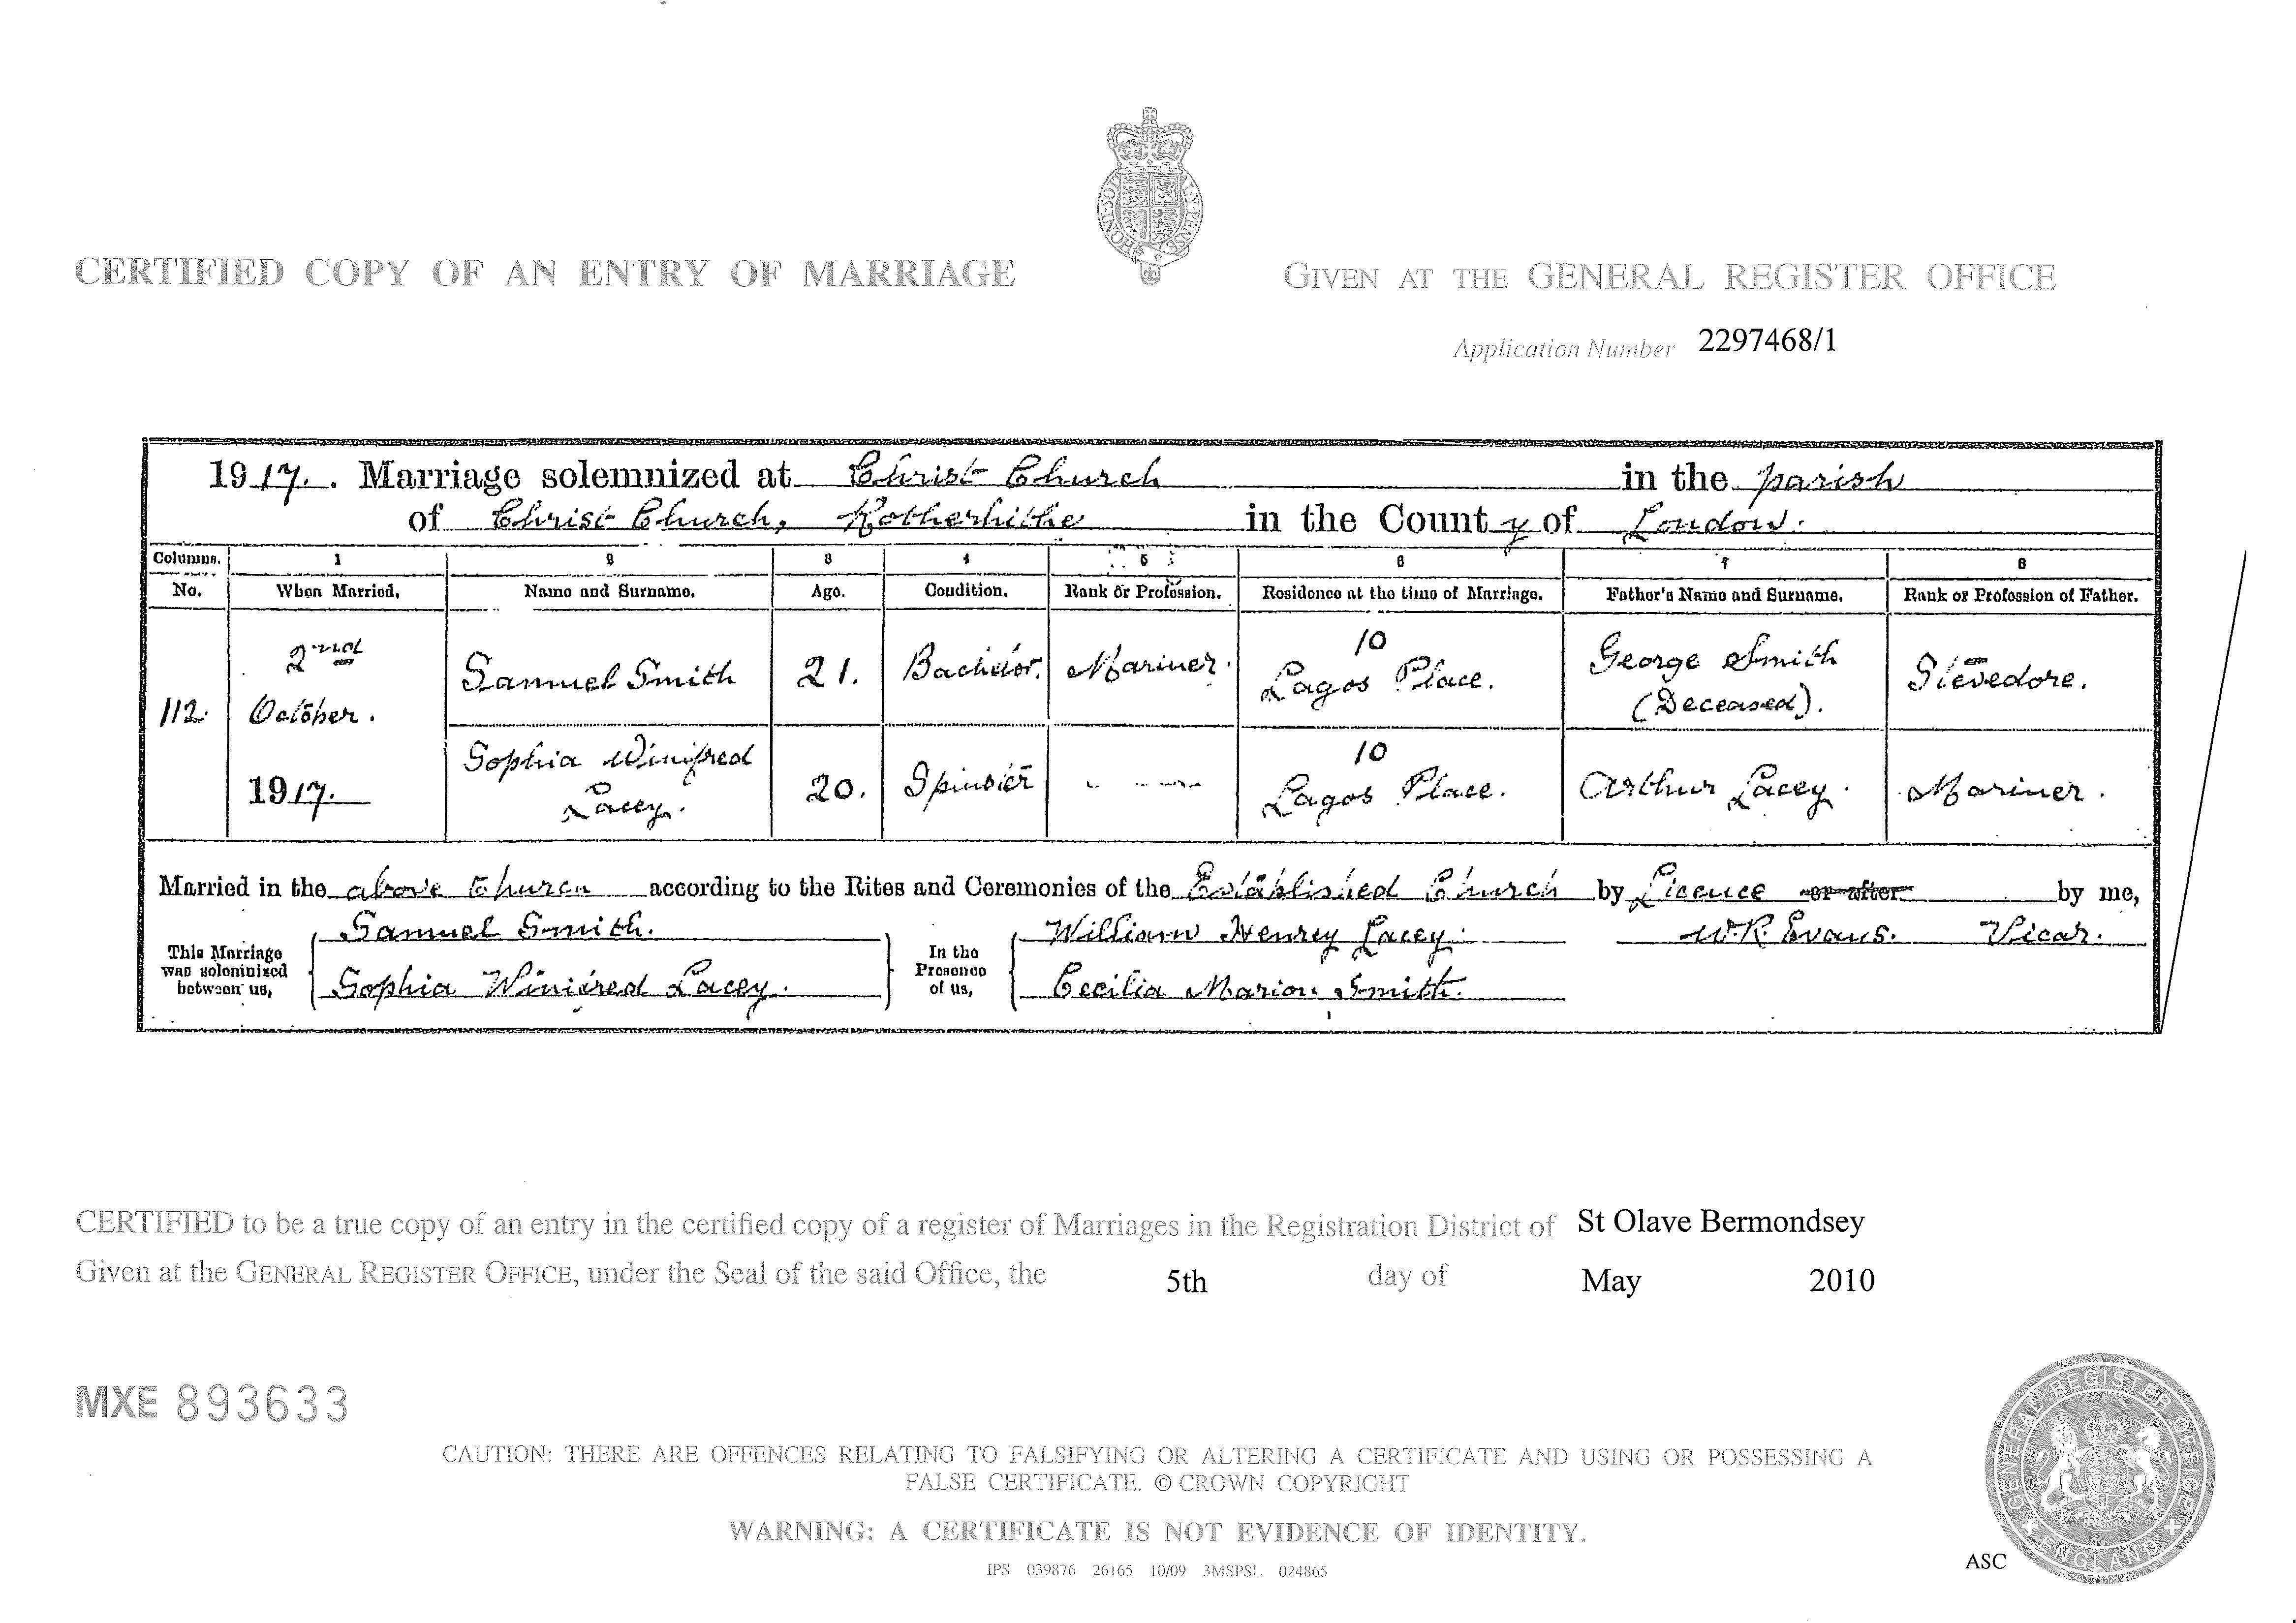 HONI·SOIT
AL·Y·PENSE
CERTIFIED COPY OF AN ENTRY OF MARRIAGE
GIVEN AT THE GENERAL REGISTER OFFICE
Application Number 2297468/1
1917. Marriage solemnized at Christ Church in the parish
of Christ Church, Rotherhithe in the County of London.
Columns. 1 2 3 4 5 6 7 8
No. When Married. Name and Surname. Age. Condition. Rank or Profession. Residence at the time of Marriage. Father's Name and Surname. Rank or Profession of Father.
112. 2nd October. 1917.
Samuel Smith 21. Bachelor. Mariner. 10 Lagos Place. George Smith (Deceased). Stevedore.
Sophia Winifred Lacey. 20. Spinster - - - - 10 Lagos Place. Arthur Lacey. Mariner.
Married in the above Church according to the Rites and Ceremonies of the Established Church by Licence or after by me,
This Marriage was solemnized between us,
Samuel Smith.
Sophia Winifred Lacey.
In the Presence of us,
William Henrey Lacey.
Cecilia Marion Smith.
W.R. Evans. Vicar.
CERTIFIED to be a true copy of an entry in the certified copy of a register of Marriages in the Registration District of St Olave Bermondsey
Given at the GENERAL REGISTER OFFICE, under the Seal of the said Office, the 5th day of May 2010
MXE 893633
CAUTION: THERE ARE OFFENCES RELATING TO FALSIFYING OR ALTERING A CERTIFICATE AND USING OR POSSESSING A
FALSE CERTIFICATE. © CROWN COPYRIGHT
WARNING: A CERTIFICATE IS NOT EVIDENCE OF IDENTITY.
IPS 039876 26165 10/09 3MSPSL 024865
ASC
GENERAL REGISTER OFFICE
+ ENGLAND +